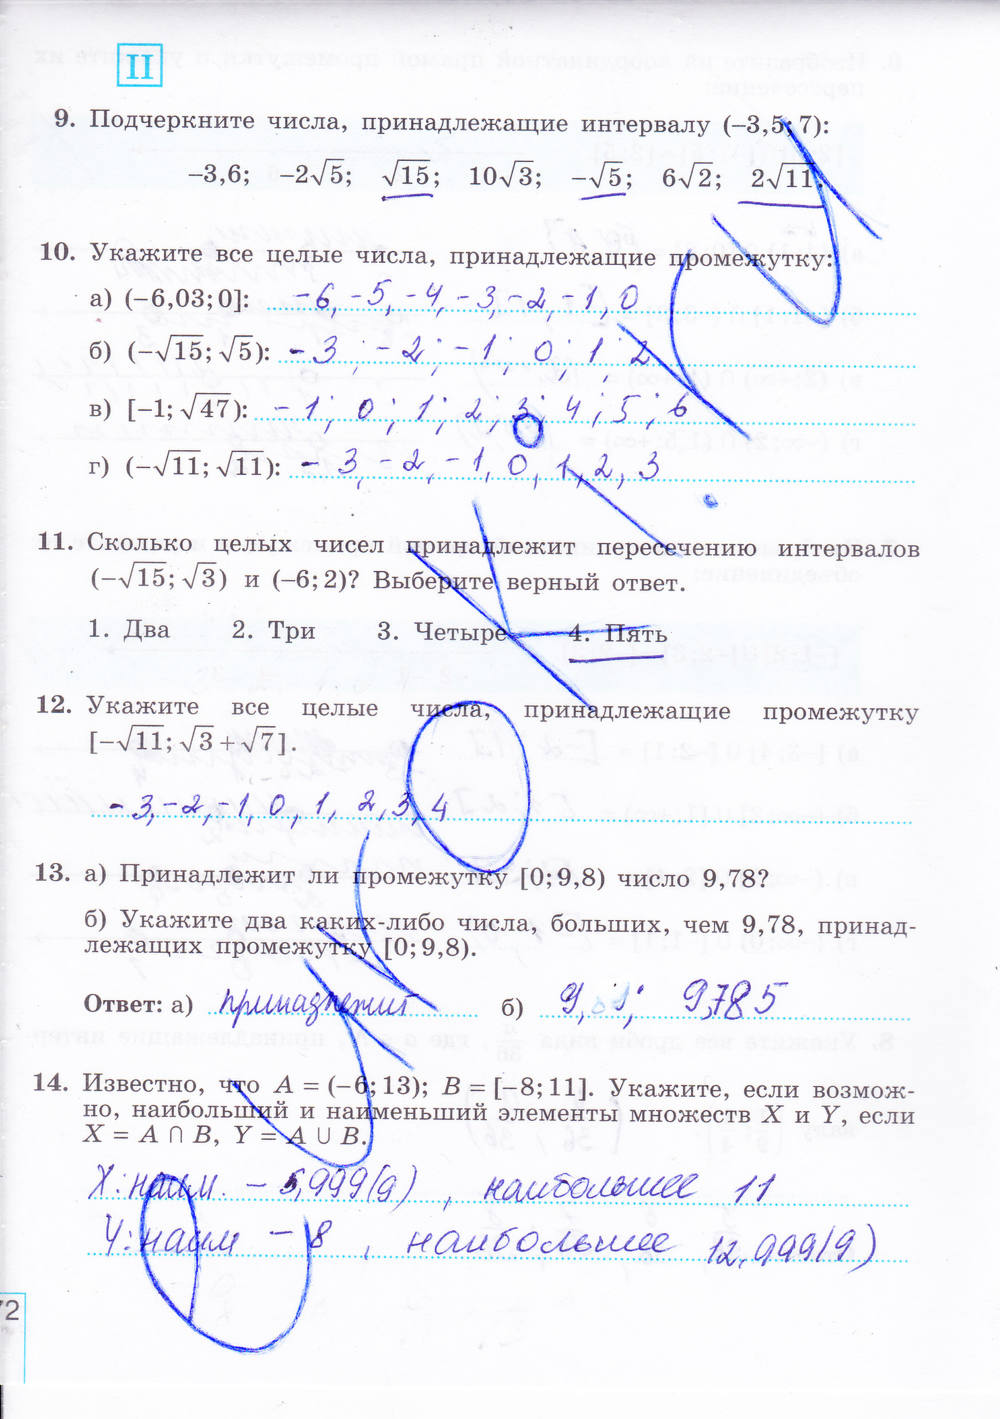 II
9. Подчеркните числа, принадлежащие интервалу (–3,5; 7):
–3,6; –2√5; √15; 10√3; –√5; 6√2; 2√11.
10. Укажите все целые числа, принадлежащие промежутку:
а) (–6,03; 0]: –6, –5, –4, –3, –2, –1, 0
б) (–√15; √5): –3; –2; –1; 0; 1; 2
в) [–1; √47): –1; 0; 1; 2; 3; 4; 5; 6
г) (–√11; √11): –3, –2, –1, 0, 1, 2, 3
11. Сколько целых чисел принадлежит пересечению интервалов
(–√15; √3) и (–6; 2)? Выберите верный ответ.
1. Два 2. Три 3. Четыре 4. Пять
12. Укажите все целые числа, принадлежащие промежутку
[–√11; √3 + √7].
–3, –2, –1, 0, 1, 2, 3, 4
13. а) Принадлежит ли промежутку [0; 9,8) число 9,78?
б) Укажите два каких-либо числа, больших, чем 9,78, принад-
лежащих промежутку [0; 9,8).
Ответ: а) принадлежит б) 9, ; 9,785
14. Известно, что A = (–6; 13); B = [–8; 11]. Укажите, если возмож-
но, наибольший и наименьший элементы множеств X и Y, если
X = A ∩ B, Y = A ∪ B.
X: наим. –5,999(9), наибольшее 11
Y: наим –8, наибольшее 12,999(9)
72